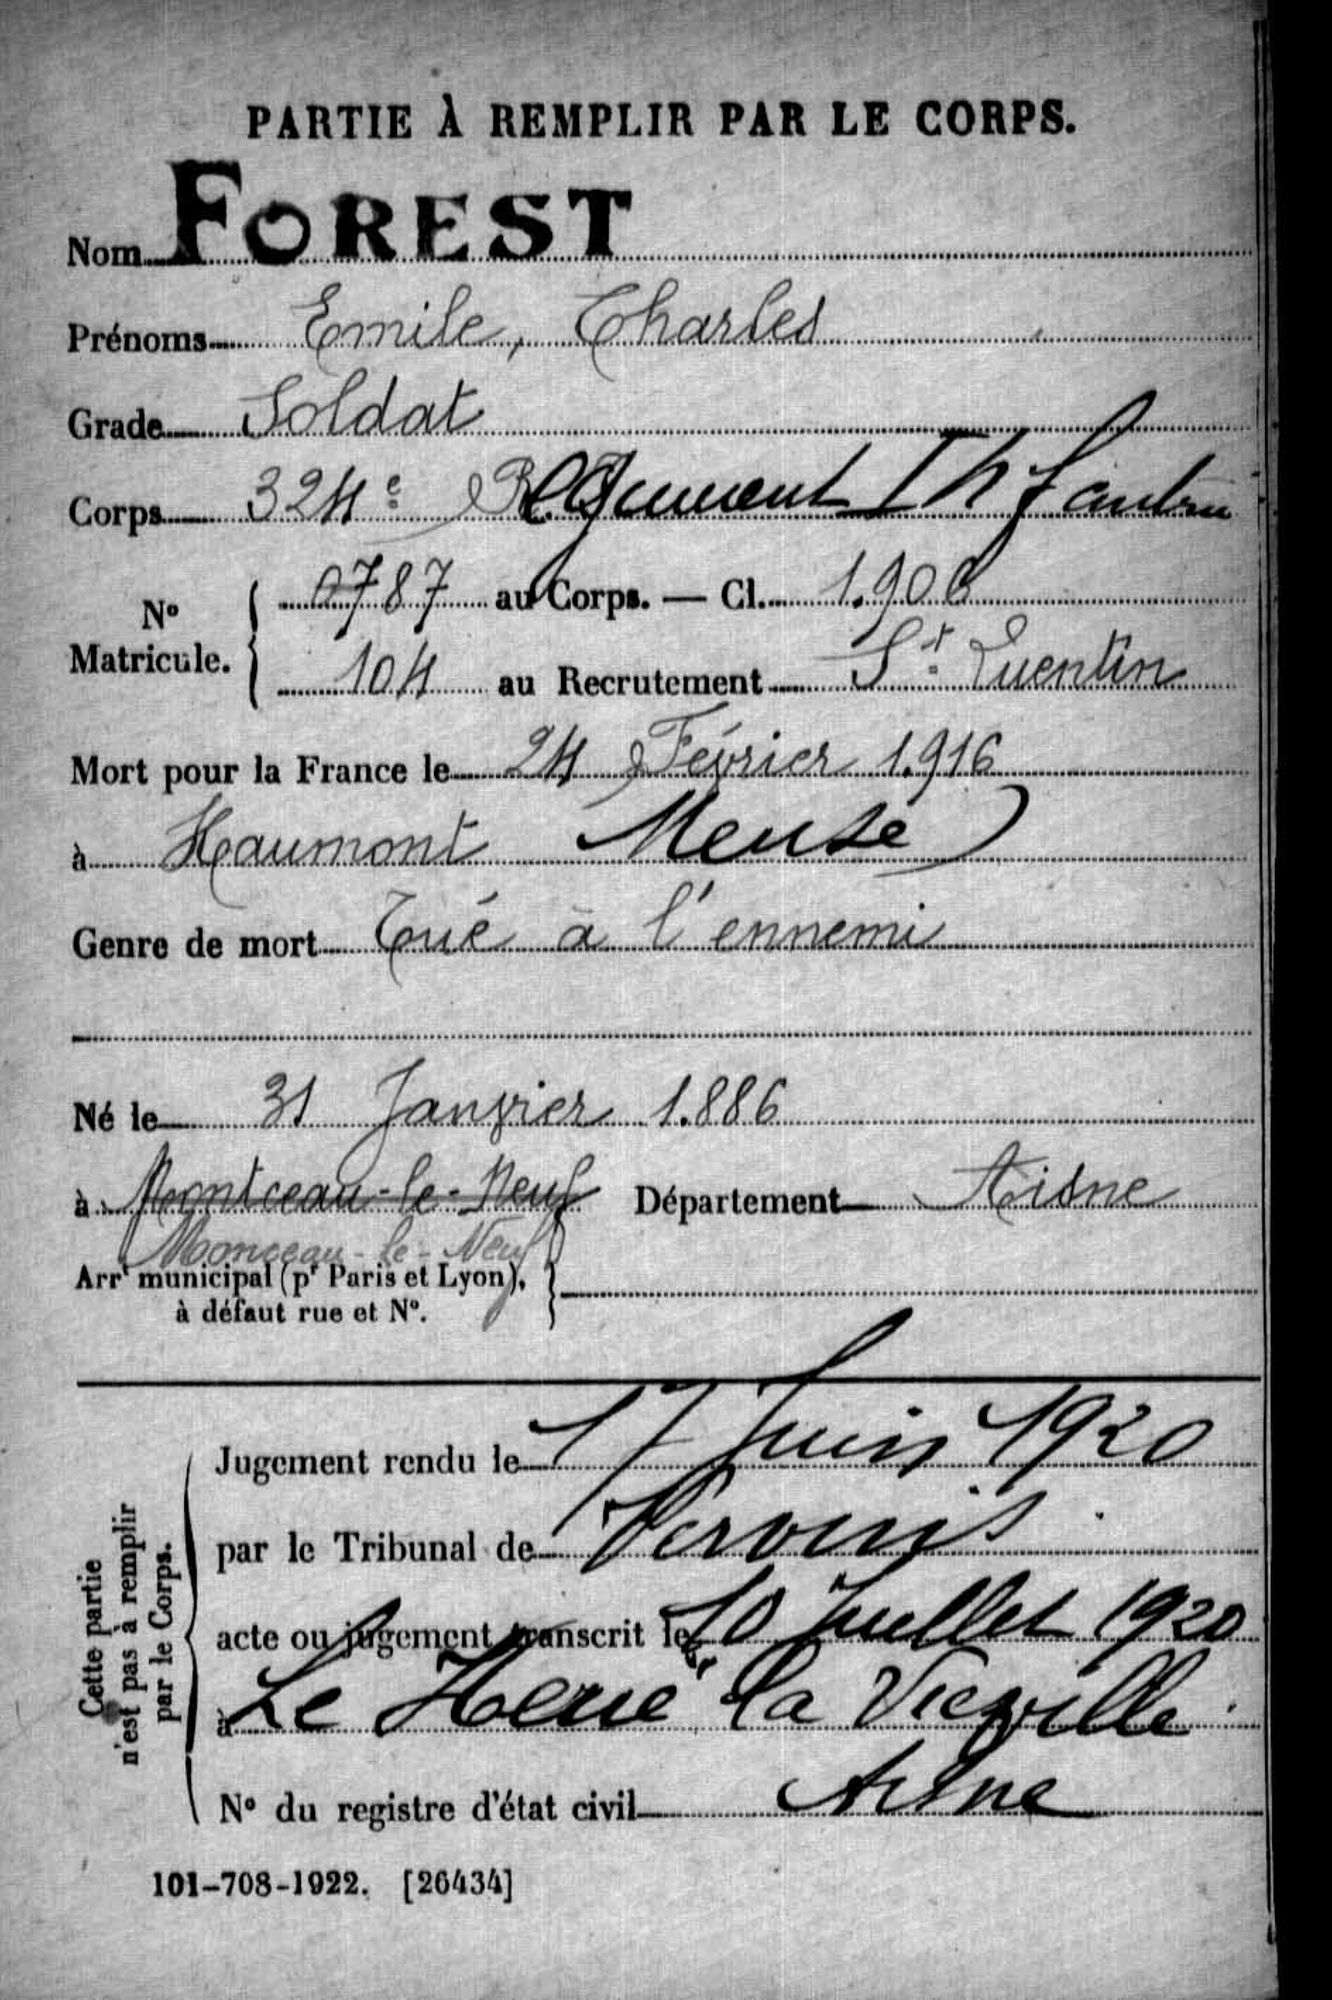 PARTIE À REMPLIR PAR LE CORPS.
Nom FOREST
Prénoms Emile, Charles
Grade Soldat
Corps 324e Régiment Infanterie
N° Matricule. 0787 au Corps. — Cl. 1.906
104 au Recrutement St Quentin
Mort pour la France le 24 Février 1.916
à Haumont Meuse)
Genre de mort Tué à l'ennemi
Né le 31 Janvier 1.886
à Montceau-le-Neuf Département Aisne
Monceau-le-Neuf
Arrt municipal (pr Paris et Lyon), à défaut rue et N°.
Cette partie n'est pas à remplir par le Corps.
Jugement rendu le 17 Juin 1920
par le Tribunal de Vervins
acte ou jugement transcrit le 10 Juillet 1920
à Le Herie la Vieville
Aisne
N° du registre d'état civil
101-708-1922. [26434]